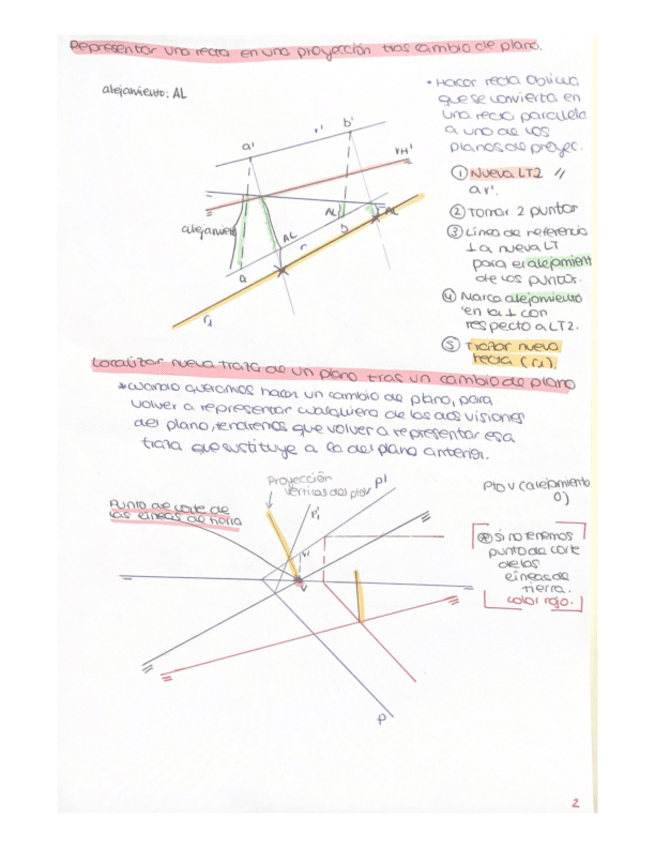 Representar una recta en una proyección tras cambio de plano.
alejamiento: AL
• Hacer recta oblicua
que se convierta en
una recta paralela
a uno de los
planos de proyec.
① Nueva LT2 //
a r'.
② Tomar 2 puntos
③ Línea de referencia
⊥ a nueva LT
para el alejamient
de los puntos.
④ Marca alejamiento
en la ⊥ con
respecto a LT2.
⑤ Trazar nueva
recta (r₁).
a'
r'
b'
alejamient
AL
AL
AL
b
r
a
r₁
Localizar nueva traza de un plano tras un cambio de plano
*cuando queramos hacer un cambio de plano, para
volver a representar cualquiera de las dos visiones
del plano, tendremos que volver a representar esa
traza que sustituye a la del plano anterior.
Proyección
vertical del pto V
P'
Pto V (alejamiento
0)
Punto de corte de
las líneas de
P'₁
V₁
V
P
* si no tenemos
punto de corte
de las
líneas de
tierra.
color rojo.
2